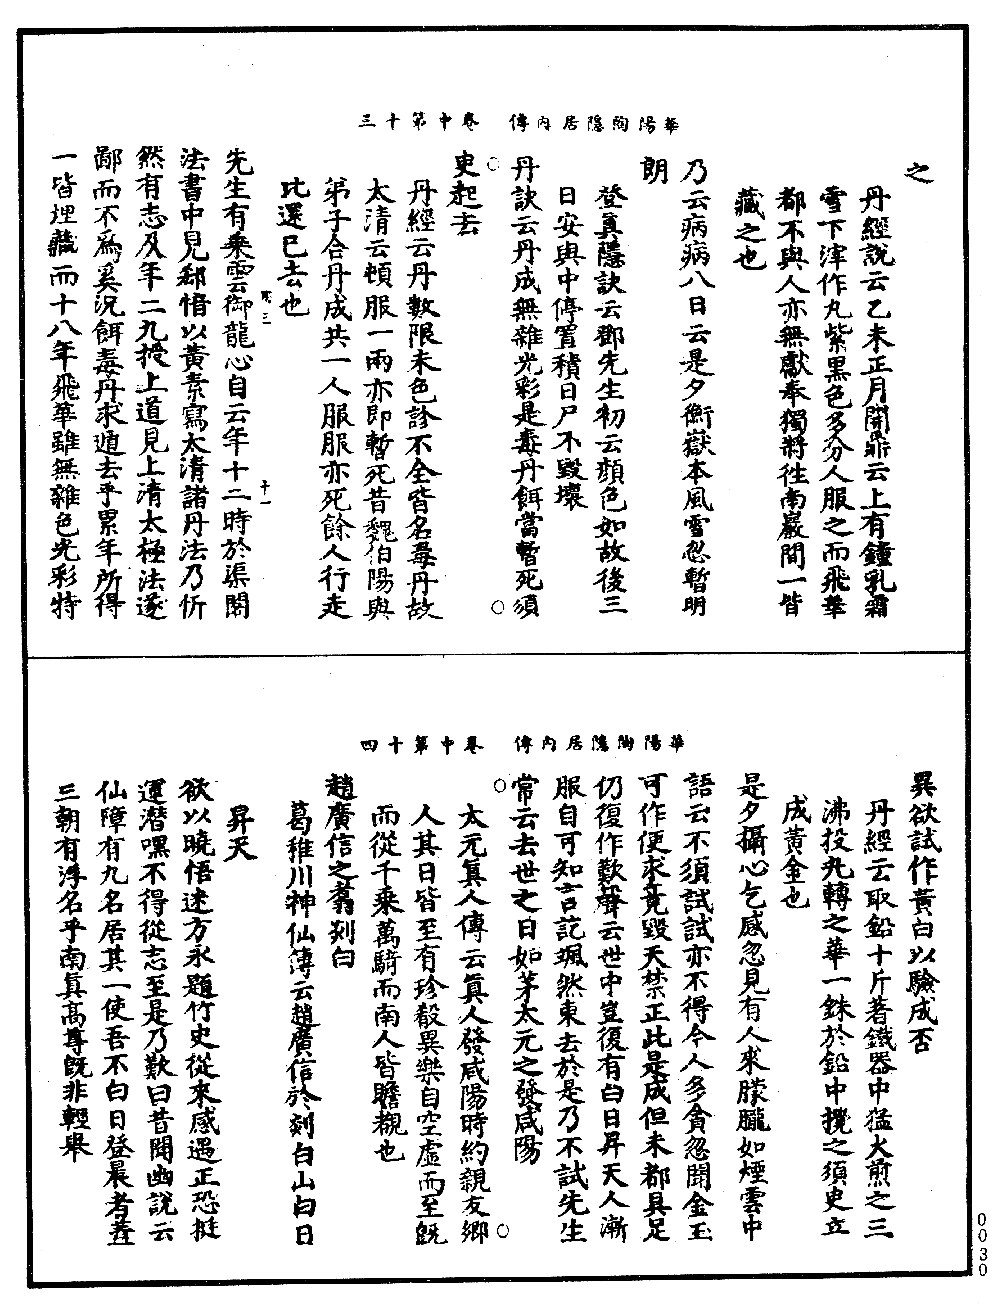 華陽陶隱居內傳　卷中第十三
之
丹經說云乙未正月開鼎云上有鍾乳霜
雪下滓作丸紫黑色多分人服之而飛華
都不與人亦無獻奉獨將往南巖間一皆
藏之也
乃云病病八日云是夕衡嶽本風雪忽暫明
朗
登真隱訣云鄧先生初云顏色如故後三
日安與中停置積日尸不毀壞
丹訣云丹成無雜光彩是毒丹餌當暫死須
史起去
丹經云丹數限未色診不全皆名毒丹故
太清云頓服一兩亦即暫死昔魏伯陽與
弟子合丹成共一人服服亦死餘人行走
比還已去也
先生有乘雲御龍心自云年十二時於渠閣
法書中見郄愔以黃素寫太清諸丹法乃忻
然有志及年二九授上道見上清太極法遂
鄙而不為奚況餌毒丹求遁去乎累年所得
一皆埋藏而十八年飛華雖無雜色光彩特
華陽陶隱居內傳　卷中第十四
異欲試作黃白以驗成否
丹經云取鉛十斤著鐵器中猛火煎之三
沸投九轉之華一銖於鉛中攪之須史立
成黃金也
是夕攝心乞感忽見有人來朦朧如煙雲中
語云不須試試亦不得今人多貪忽聞金玉
可作便求竟毀天禁正此是成但未都具足
仍復作歎聲云世中豈復有白日昇天人漸
服自可知言訖颯然東去於是乃不試先生
常云去世之日如茅太元之發咸陽
太元真人傳云真人發咸陽時約親友鄉
人其日皆至有珍殽異樂自空虛而至既
而從千乘萬騎而南人皆瞻覩也
趙廣信之翥剡白
葛稚川神仙傳云趙廣信於剡白山白日
昇天
欲以曉悟迷方永題竹史從來感遇正恐挺
運潛嘿不得從志至是乃歎曰昔聞幽說云
仙障有九名居其一使吾不白日登晨者蓋
三朝有浮名乎南真高尊既非輕舉
0030